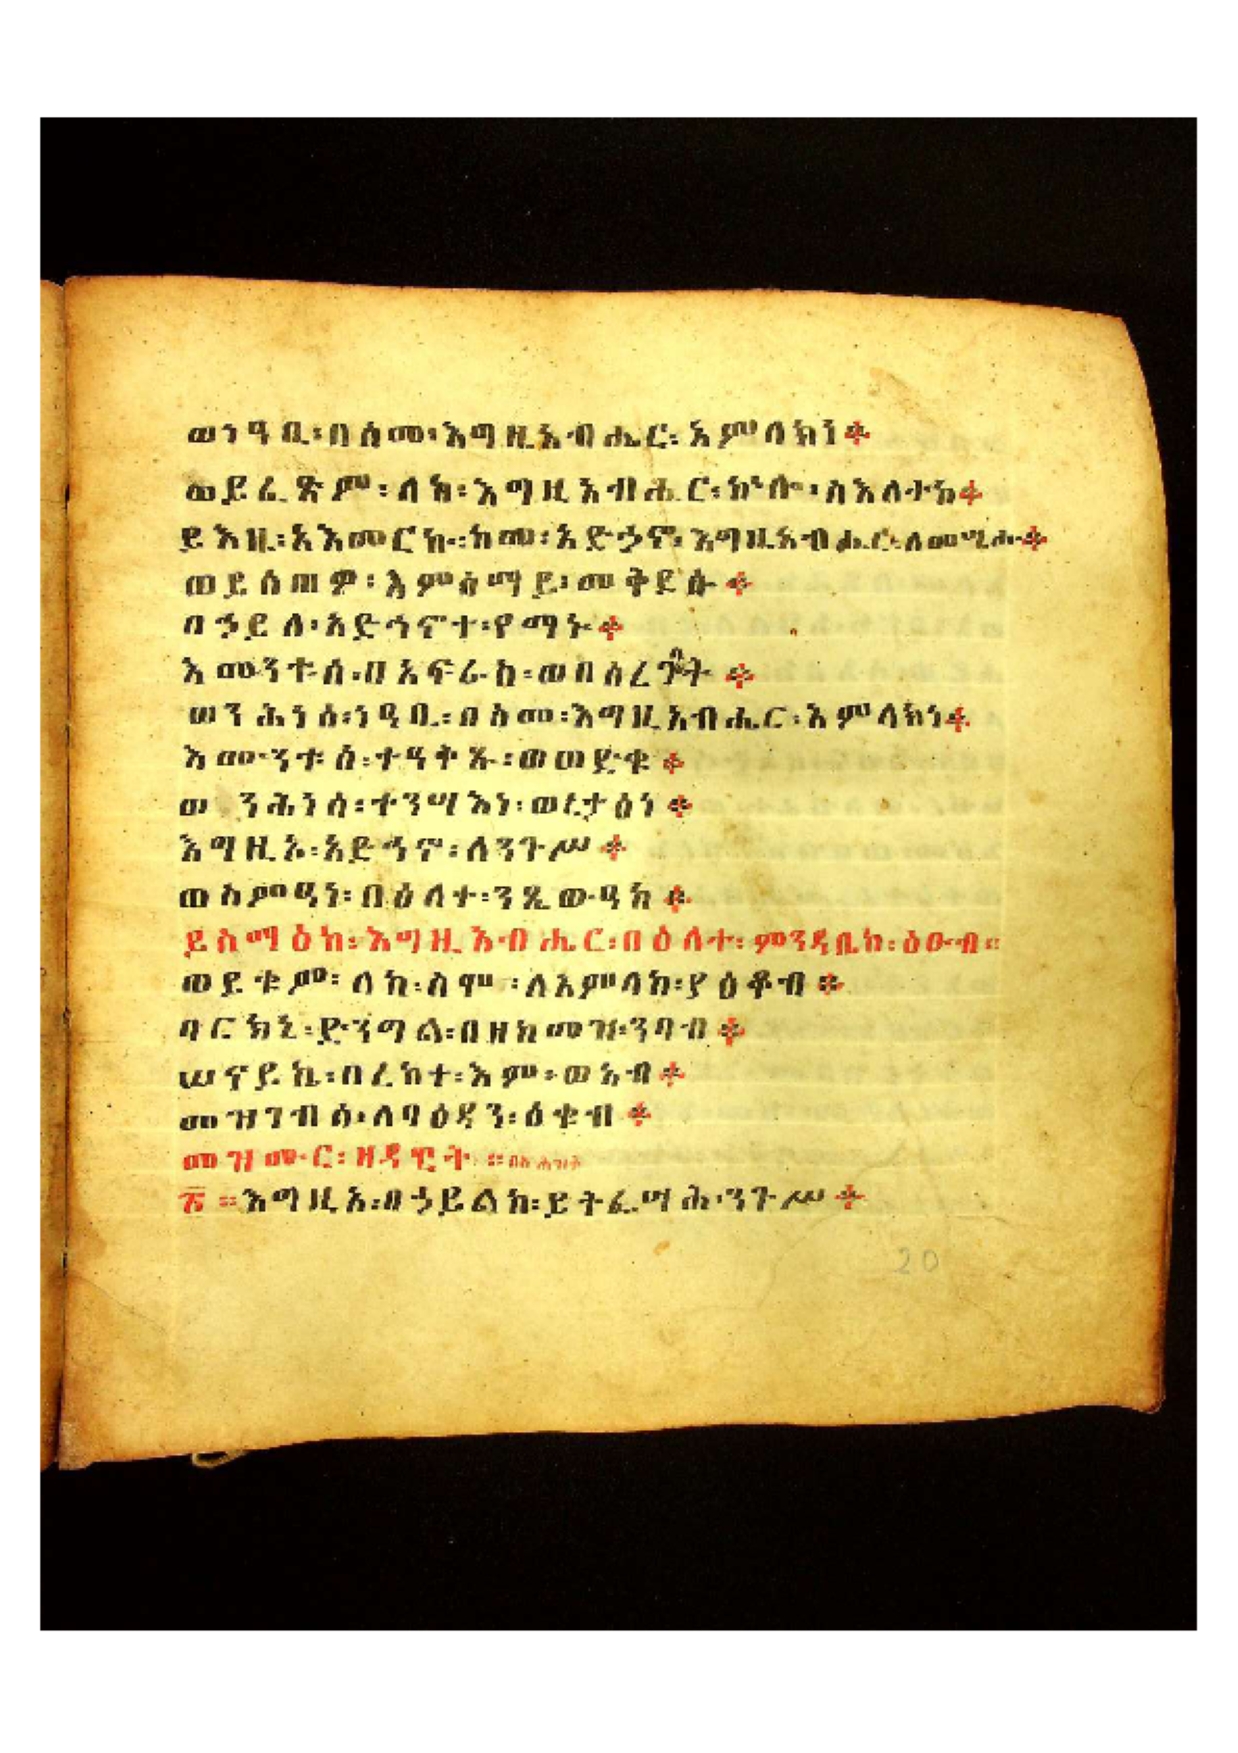 ወነዓቢ፡በስመ፡እግዚአብሔር፡አምላክነ፨
ወይፌጽም፡ለከ፡እግዚአብሔር፡ኵሎ፡ስእለተከ፨
ይእዜ፡አእመርኩ፡ከመ፡አድኃኖ፡እግዚአብሔር፡ለመሲሑ፨
ወይሰጠዎ፡እምሰማይ፡መቅደሱ፨
በኃይለ፡አድኅኖተ፡የማኑ፨
እሙንቱሰ፡በአፍራስ፡ወበሰረገላት፨
ወንሕነሰ፡ነዓቢ፡በስመ፡እግዚአብሔር፡አምላክነ፨
እሙንቱሰ፡ተዓቅጹ፡ወወድቁ፨
ወንሕነሰ፡ተንሣእነ፡ወረታዕነ፨
እግዚኦ፡አድኅኖ፡ለንጉሥ፨
ወስምዓነ፡በዕለተ፡ንጼውዓከ፨
ይስማዕከ፡እግዚአብሔር፡በዕለተ፡ምንዳቤከ፡ዕፁብ።
ወይቁም፡ለከ፡ስሞ፡ለአምላከ፡ያዕቆብ፨
ባርክኒ፡ድንግል፡በዘከመዝ፡ንባብ፨
ሠናይኪ፡በረከተ፡እም፡ወአብ፨
መዝገብሰ፡ለባዕዳን፡ዕቁብ፨
መዝሙር፡ዘዳዊት።
፳።እግዚኦ፡በኃይልከ፡ይትፌሣሕ፡ንጉሥ፨
20